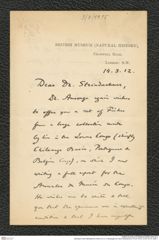 BRITISH MUSEUM (NATURAL HISTORY),
CROMWELL ROAD,
LONDON: S.W.
14.3.12.
Dear Dr. Steindachner,
Dr. Ansorge again wishes
to offer you a set of Fishes
from a large collection made
by him in the Lower Congo (chiefly
Chiloango Basin, Portuguese &
Belgian Congo), on which I am
writing a full report for the
Annales du Musée du Congo.
He wishes me to write & tell
you that the specimens are in
condition & that I have